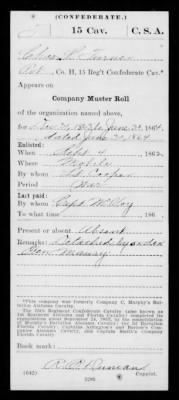 (CONFEDERATE.)
J 15 Cav. C. S. A.
Chas. H. Turner
Pvt, Co. H, 15 Reg't Confederate Cav.*
Appears on
Company Muster Roll
of the organization named above,
for Dec 31, 1863 to June 30, 1864.
dated June 30, 1864
Enlisted:
When Sept 4, 1862.
Where Mobile
By whom Cooper
Period war
Last paid:
By whom Capt McVoy
To what time , 186 .
Present or absent Absent
Remarks: Detached by order
Gen. Maury
*This company was formerly Company C, Murphy's Battalion Alabama Cavalry.
The 15th Regiment Confederate Cavalry (also known as 1st Regiment Alabama and Florida Cavalry) completed its organization about September 24, 1863, by the consolidation of Murphy's Battalion Alabama Cavalry
Florida Cavalry
Book mark:
(642) Copyist.